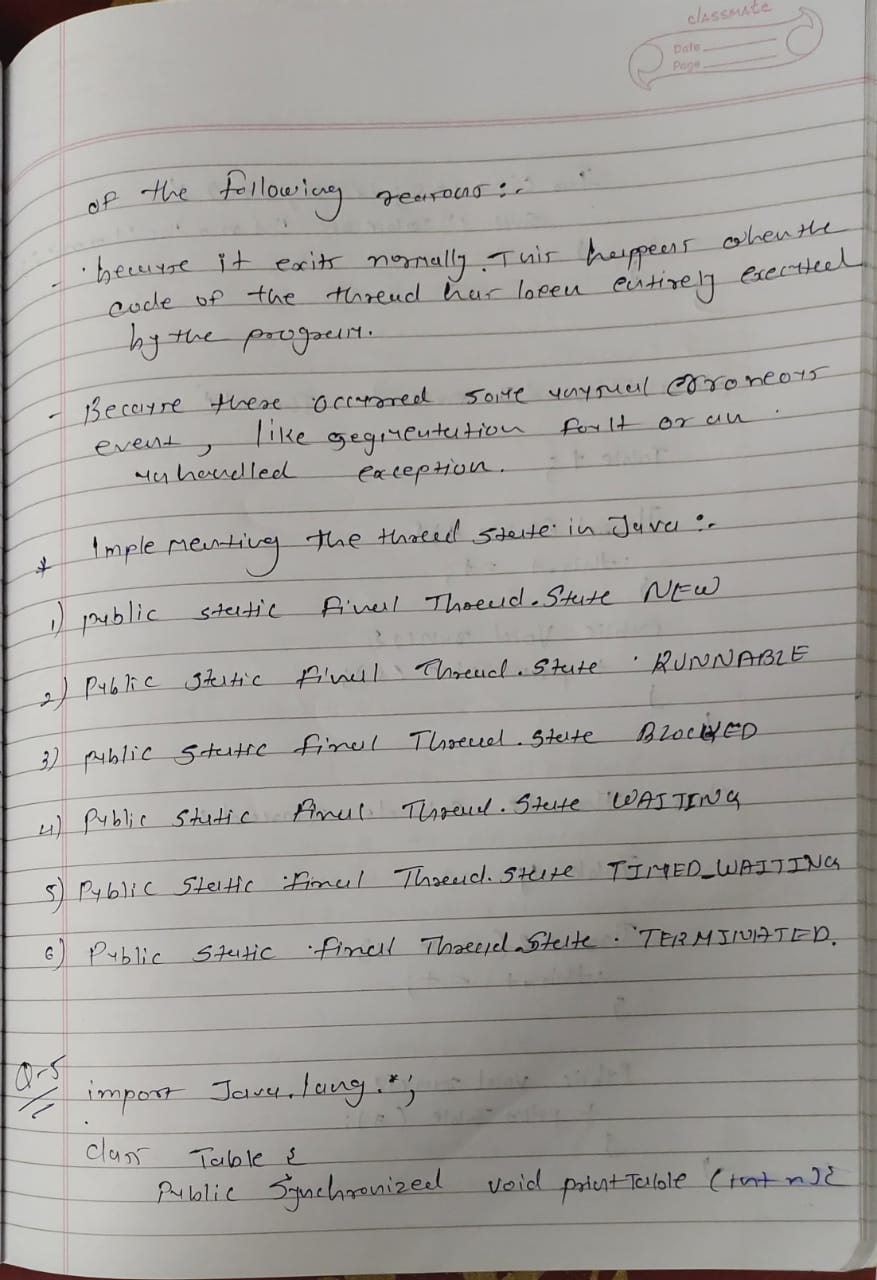 classmate
Date
Page
of the following reasons :-
- because it exits normally. This happens when the
code of the thread has been entirely executed
by the program.
- Because there occurred some unusual erroneous
event, like segmentation fault or an
unhandled exception.
* Implementing the thread state in Java :-
1) public static final Thread.State NEW
2) Public static final Thread.State RUNNABLE
3) public static final Thread.State BLOCKED
4) Public static final Thread.State WAITING
5) Public static final Thread.State TIMED_WAITING
6) Public static final Thread.State TERMINATED.
Q-5
import Java.lang.*;
class Table {
Public Synchronized void printTable (int n) {